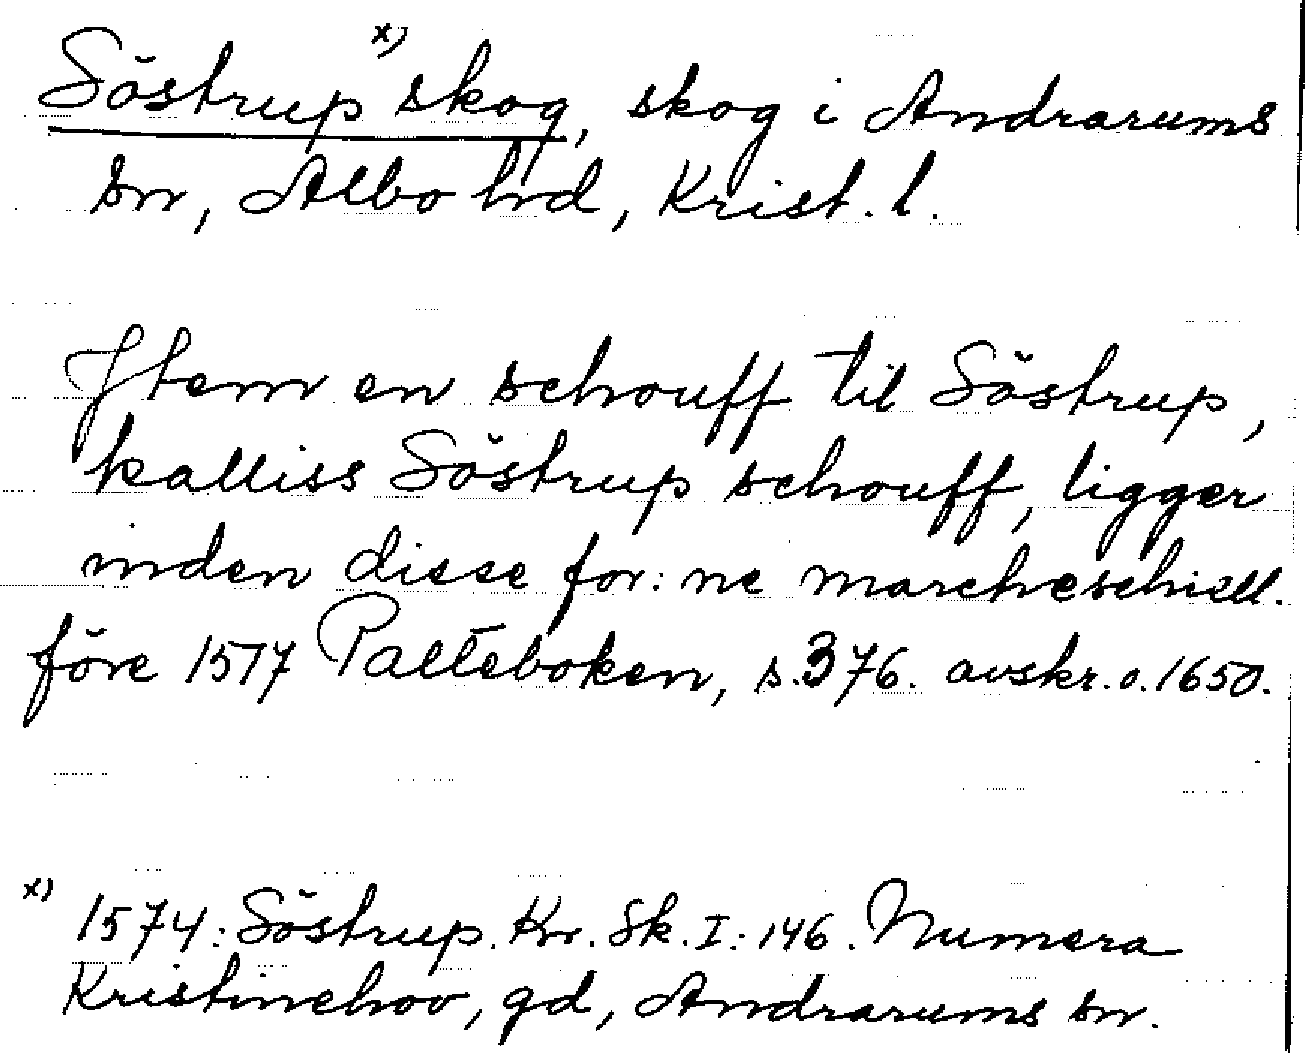 Söstrup x) skog, skog i Andrarums
sn, Albo hd, Krist. l.
Jtem en schouff til Söstrup,
kalliss Söstrup schouff, ligger
inden disse for: ne marcheschiell.
före 1517 Palteboken, s. 376. avskr. o. 1650.
x) 1574: Söstrup. Kr. Sk. I: 146. Numera
Kristinehov, gd, Andrarums sn.